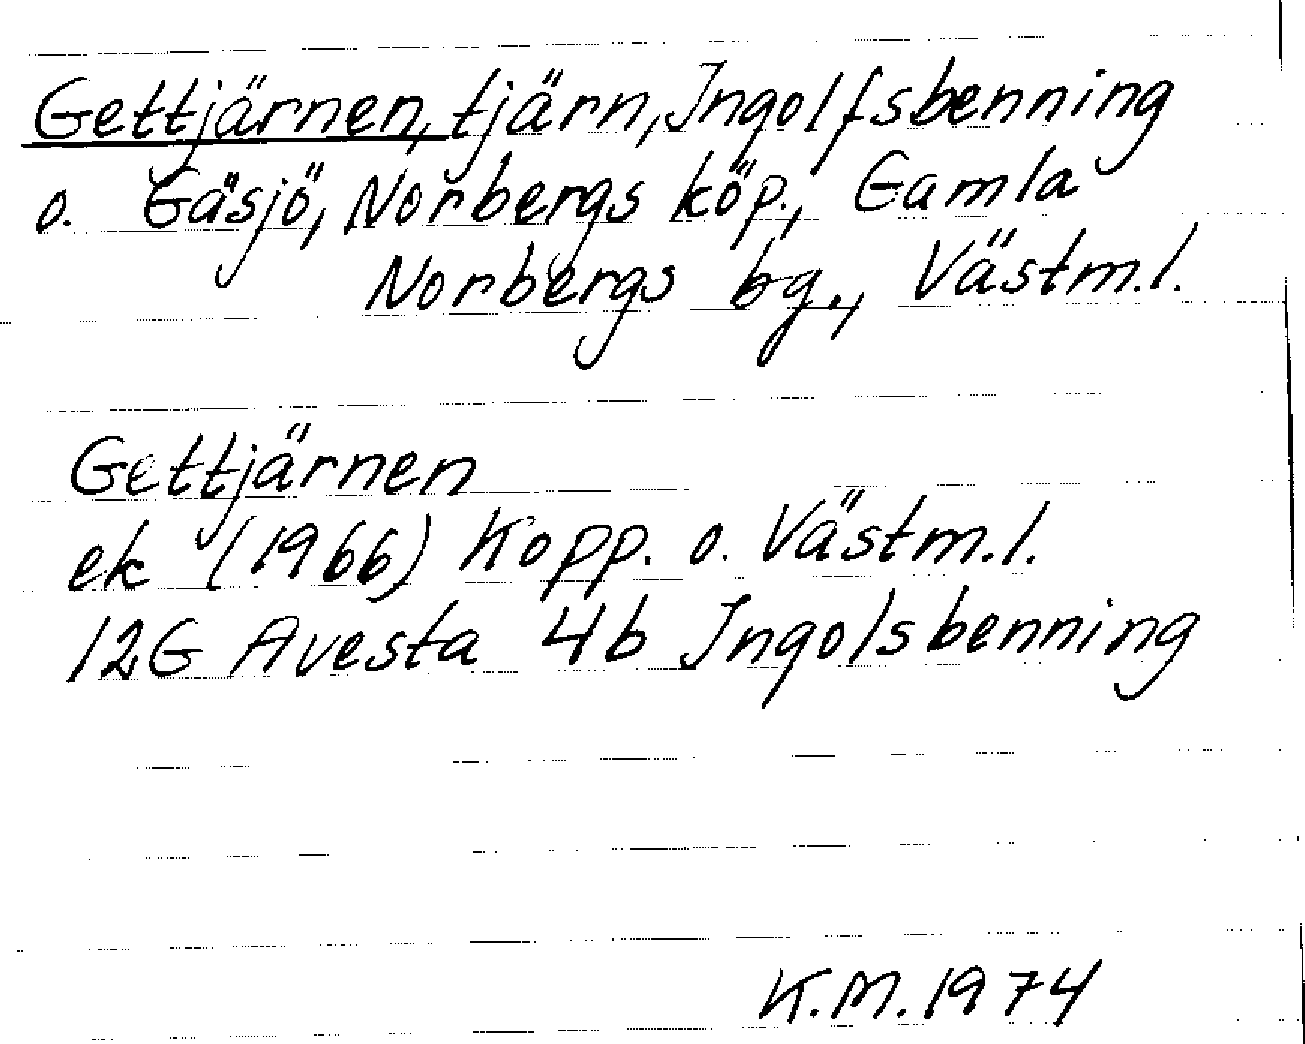 Gettjärnen, tjärn, Ingolfsbenning
o. Gäsjö, Norbergs köp., Gamla
Norbergs bg., Västm.l.
Gettjärnen
ek (1966) Kopp. o. Västm.l.
12G Avesta 4b Ingolsbenning
K.M. 1974